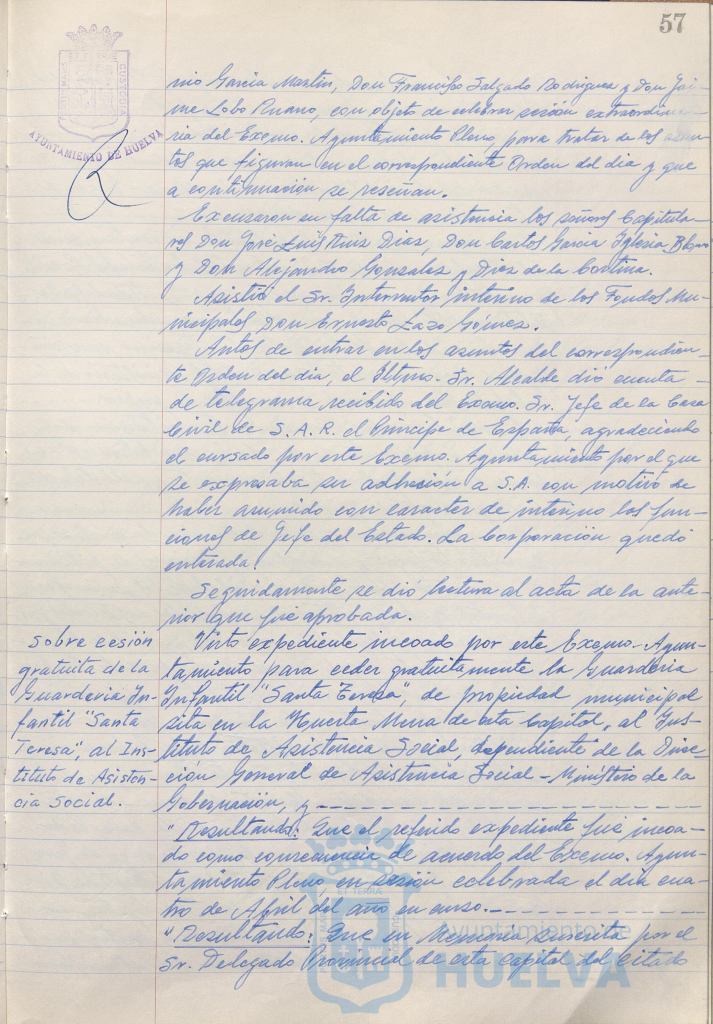 57
AYUNTAMIENTO DE HUELVA
nio Garcia Martin, Don Francisco Salgado Rodriguez y Don Jai-
me Lobo Ruano, con objeto de celebrar sesión extraordina-
ria del Excmo. Ayuntamiento Pleno, para tratar de los asun-
tos que figuran en el correspondiente Orden del dia y que
a continuación se reseñan.
Excusaron su falta de asistencia los señores Capitula-
res Don José Luis Ruiz Diaz, Don Carlos Garcia Iglesia Blanco
y Don Alejandro Gonzalez y Diez de la Cortina.
Asistió el Sr. Interventor interino de los Fondos Mu-
nicipales Don Ernesto Lazo Gómez.
Antes de entrar en los asuntos del correspondien-
te Orden del dia, el Iltmo. Sr. Alcalde dió cuenta
de telegrama recibido del Excmo. Sr. Jefe de la Casa
Civil de S.A.R. el Principe de España, agradeciendo
el cursado por este Excmo. Ayuntamiento por el que
se expresaba su adhesión a S.A. con motivo de
haber asumido con caracter de interino las fun-
ciones de Jefe del Estado. La Corporación quedó
enterada.
Seguidamente se dió lectura al acta de la ante-
rior que fue aprobada.
Sobre cesión
gratuita de la
Guarderia In-
fantil "Santa
Teresa", al Ins-
tituto de Asisten-
cia Social.
Visto expediente incoado por este Excmo. Ayun-
tamiento para ceder gratuitamente la Guarderia
Infantil "Santa Teresa", de propiedad municipal
sita en la Huerta Mena de esta Capital, al Ins-
tituto de Asistencia Social, dependiente de la Direc-
ción General de Asistencia Social - Ministerio de la
Gobernación, y
"Resultando: Que el referido expediente fué incoa-
do como consecuencia de acuerdo del Excmo. Ayun-
tamiento Pleno en sesión celebrada el dia cua-
tro de Abril del año en curso.
"Resultando: Que en Memoria suscrita por el
Sr. Delegado Provincial de esta capital del citado
ayuntamiento de
HUELVA